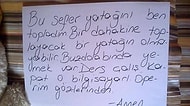 Bu sefer yatağını ben
topladım. Bir dahakine top-
layacak bir yatağın olma-
yabilir. Buzdolabında ye-
mek var. Ders çalış. Ka-
pat o bilgisayarı. Öpe-
rim gözlerinden.
-Annen